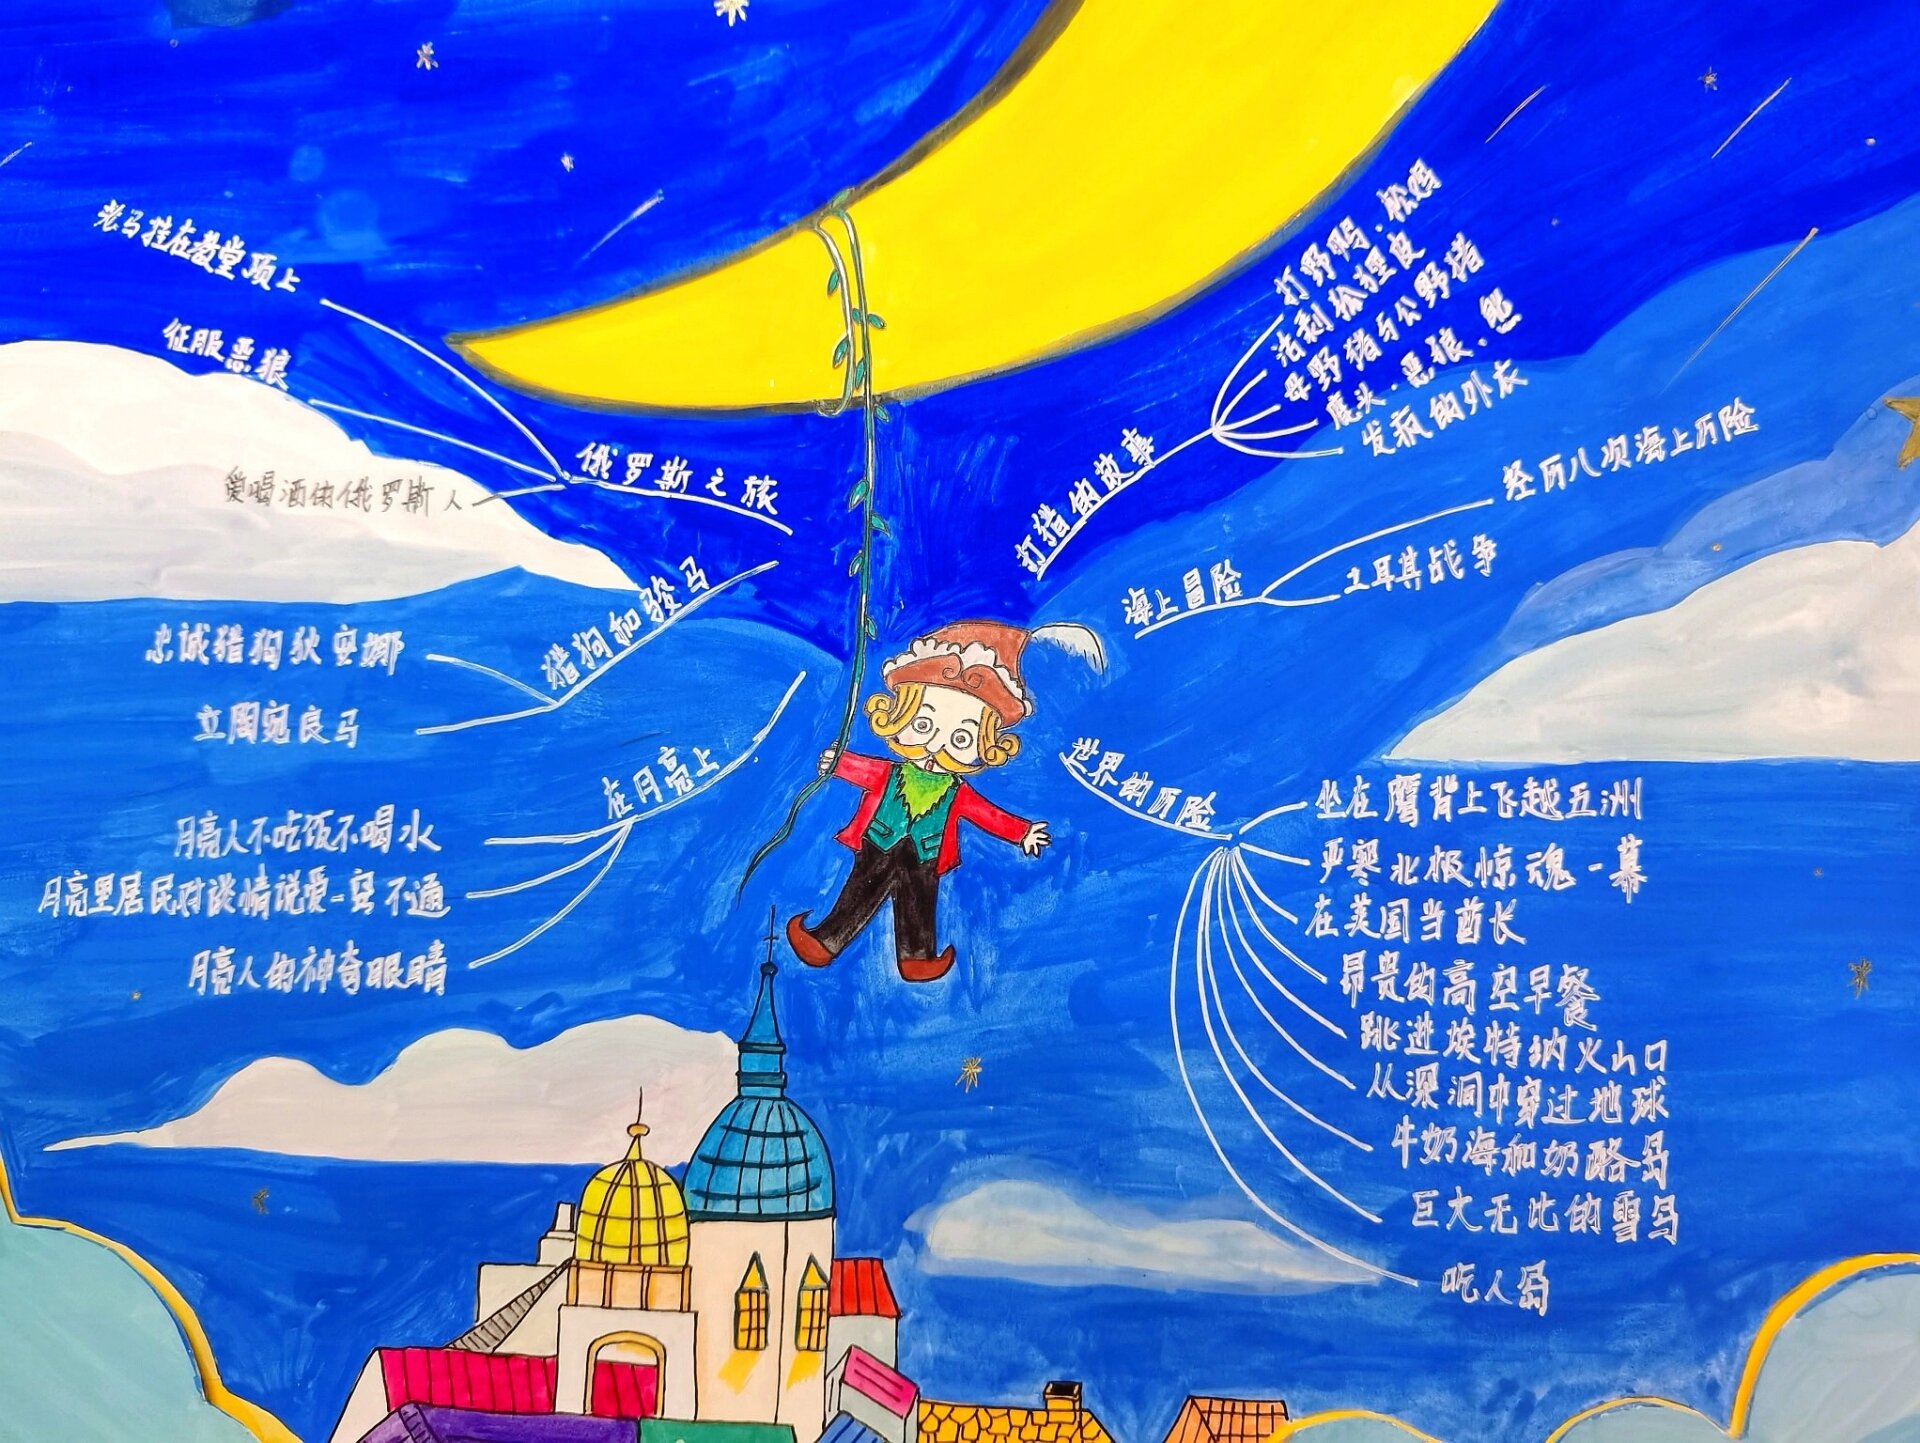 老马挂在教堂顶上
征服恶狼
爱喝酒的俄罗斯人
俄罗斯之旅
忠诚猎狗狄安娜
立陶宛良马
猎狗和骏马
在月亮上
月亮人不吃饭不喝水
月亮里居民对谈情说爱一窍不通
月亮人的神奇眼睛
打猎的故事
打野鸭、松鸡
活剥狐狸皮
母野猪与公野猪
鹿头、恶狼、熊
发疯的外衣
海上冒险
经历八次海上历险
土耳其战争
世界的历险
坐在鹰背上飞越五洲
严寒北极惊魂一幕
在美国当酋长
昂贵的高空早餐
跳进埃特纳火山口
从深洞中穿过地球
牛奶海和奶酪岛
巨大无比的雪鸟
吃人岛